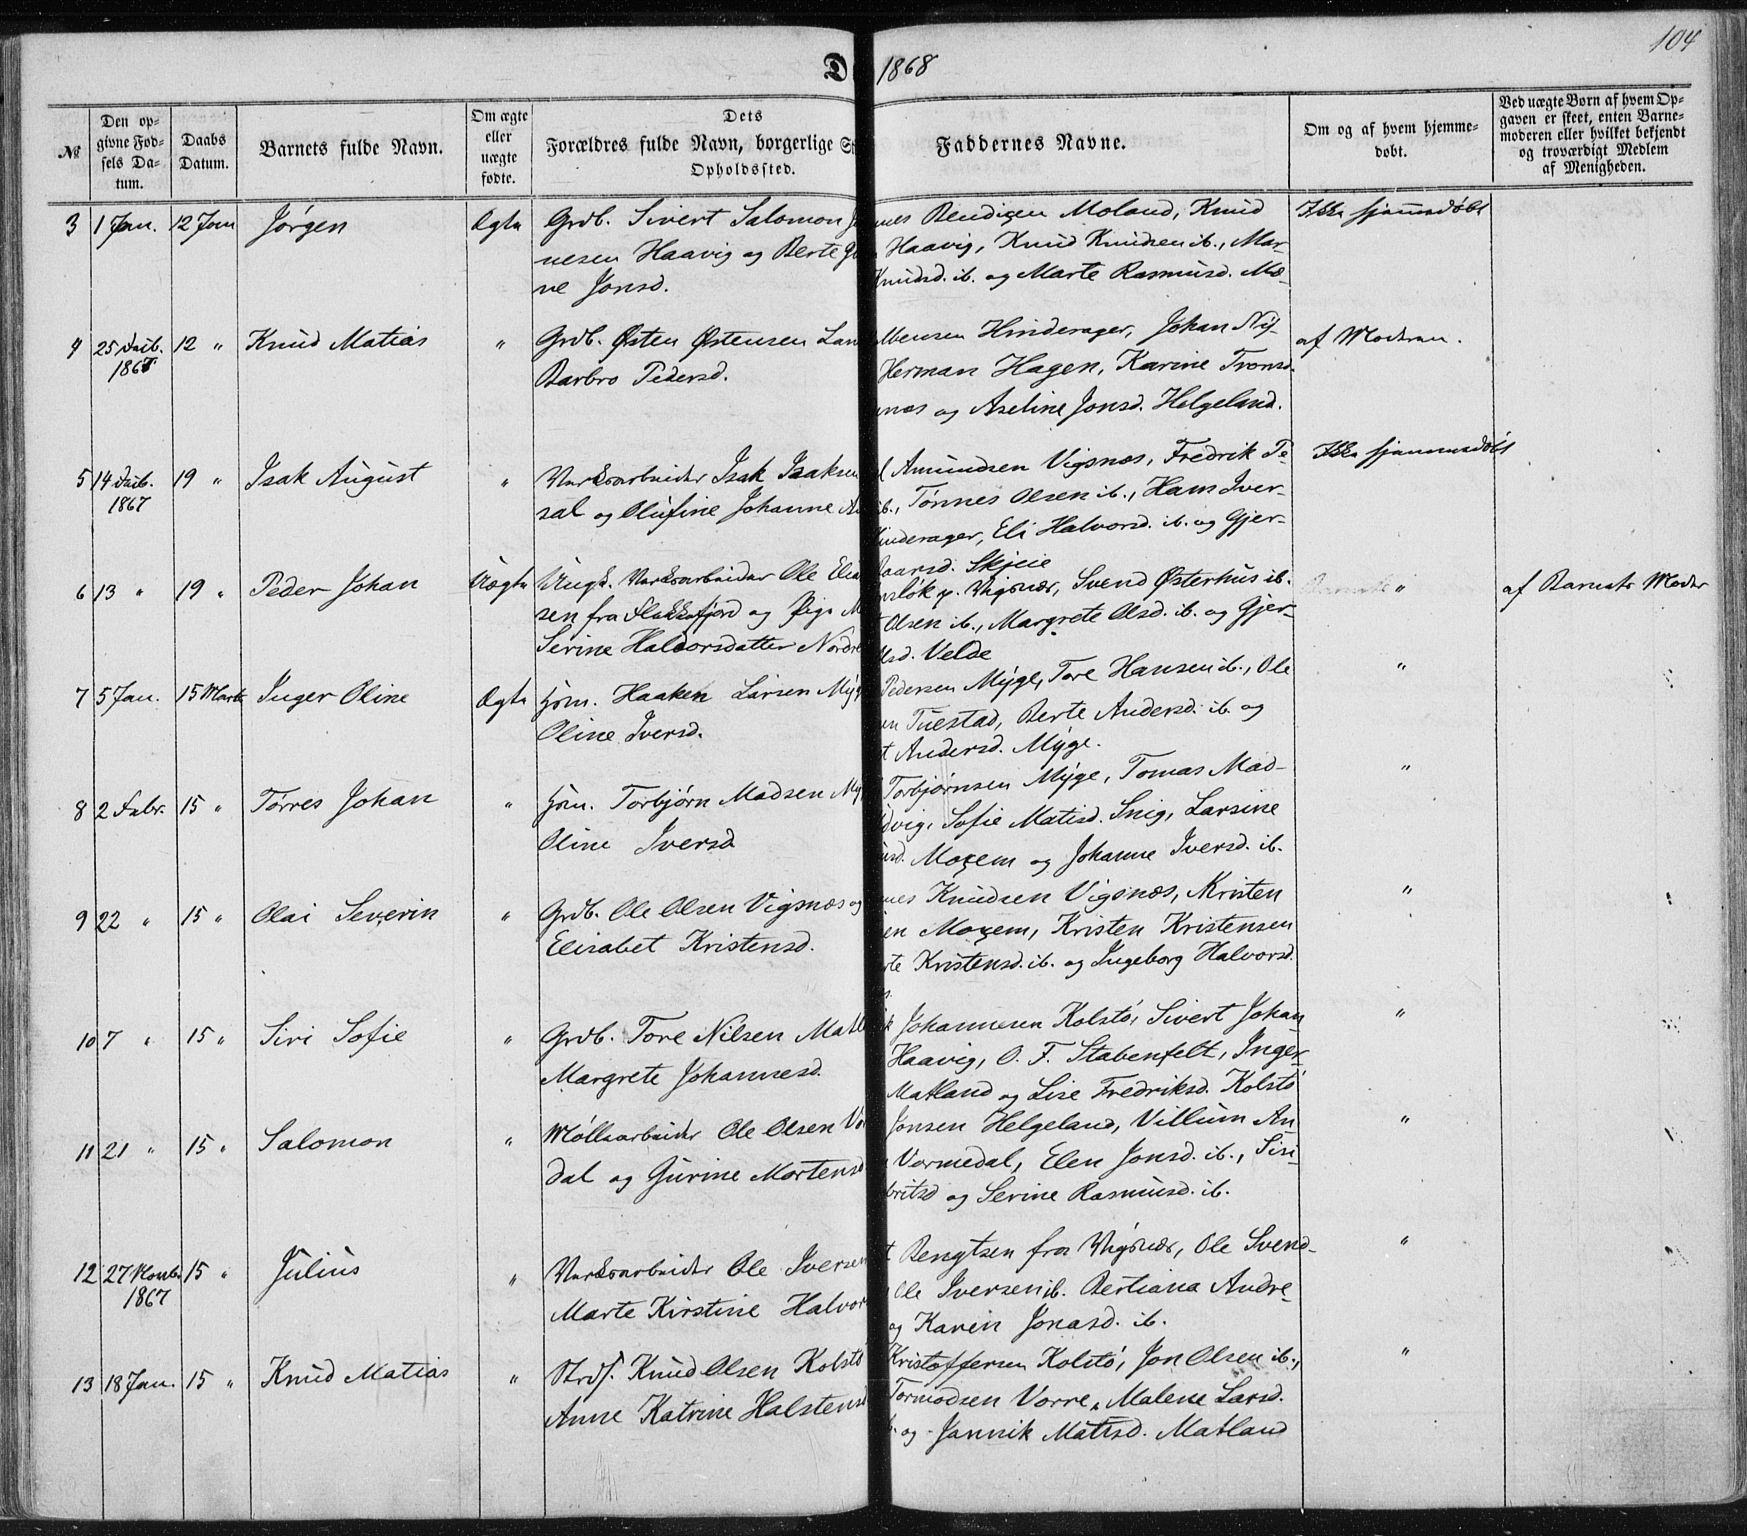 104
D 1868
№
Den opgivne Fødsels Datum.
Daabs Datum.
Barnets fulde Navn.
Om ægte eller uægte fødte.
Dets
Forældres fulde Navn, borgerlige
Opholdssted.
Faddernes Navne.
Om og af hvem hjemmedøbt.
Ved uægte Børn af hvem Opgaven er skeet, enten Barnemoderen eller hvilket bekjendt og troværdigt Medlem af Menigheden.
3 1 Jan. 12 Jan Jørgen Ægte Grdb. Sivert Salomon
nesen Haavig og Berte
ne Jonsd.
Bendixen Moland, Knud Ikke hjemmedøbt
Haavig, Knud Knudsen ib., Mar-
Knudsd. ib. og Marte Rasmusd. Mæ-
4 25 Decb. 12 " Knud Matias " Grdb. Østen Østensen
1867 Barbro Pedersd.
Hinderager, Johan Ny- af Moderen.
Herman Hagen, Karine Tronsd.
og Aseline Jonsd. Helgeland.
5 14 Decb. 19 " Isak August " Værksarbeider Isak Isaksen
1867 sal og Olufine Johanne
Amundsen Vigsnæs, Fredrik Pe- Ikke hjemmedøbt
ib., Tønnes Olsen ib., Hans Iver-
Hinderager, Eli Halvorsd. ib. og Gjer-
Skjeie
6 13 " 19 " Peder Johan Uægte Ungk. Værksarbeider Ole
sen fra Flekkefjord og Pige
Serine Haldorsdatter
p. Vigsnæs, Svend Østerhus ib. " af Barnets Moder
Olsen ib., Margrete Olsd. ib. og Gjer-
Velde
7 5 Jan. 15 Marts Inger Oline Ægte Hsm. Haaken Larsen
Oline Iversd.
Pedersen Myge, Tore Hansen ib., Ole "
Tuestad, Berte Andersd. ib. og
Andersd. Myge.
8 2 Febr. 15 " Tørres Johan " Hsm. Torbjørn Madsen
Oline Iversd
Torbjørnsen Myge, Tomas Mad- "
Sofie Matisd. Snig, Larsine
Moxem og Johanne Iversd. ib.
9 22 " 15 " Olai Severin " Grdb. Ole Olsen Vigsnæs og
Elisabet Kristensd.
Knudsen Vigsnæs, Kristen "
Moxem, Kristen Kristensen
Kristensd. ib. og Ingeborg Halvorsd.
10 7 " 15 " Siri Sofie " Grdb. Tore Nilsen
Margrete Johannesd.
Johannesen Kolstø, Sivert Johan "
Haavig, O. F. Stabenfelt, Inger
Matland og Lise Fredriksd. Kolstø
11 21 " 15 " Salomon " Møllearbeider Ole Olsen
dal og Gurine Mortensd
Jonsen Helgeland, Villum An- "
Vormedal, Elen Jonsd. ib., Siri-
og Serine Rasmusd. ib.
12 27 Novbr 15 " Julius " Værksarbeider Ole Iversen
1867 Marte Kirstine
Bengtsen fra Vigsnæs, Ole Svend- "
Ole Iversen ib. Bertiana Andre-
og Karen Jonasd. ib.
13 18 Jan. 15 " Knud Matias " Strds. Knud Olsen Kolstø
Anne Katrine Halstensd
Kristoffersen Kolstø, Jon Olsen ib., "
Tormodsen Vorre, Malene Larsd.
og Jannik Matisd. Matland